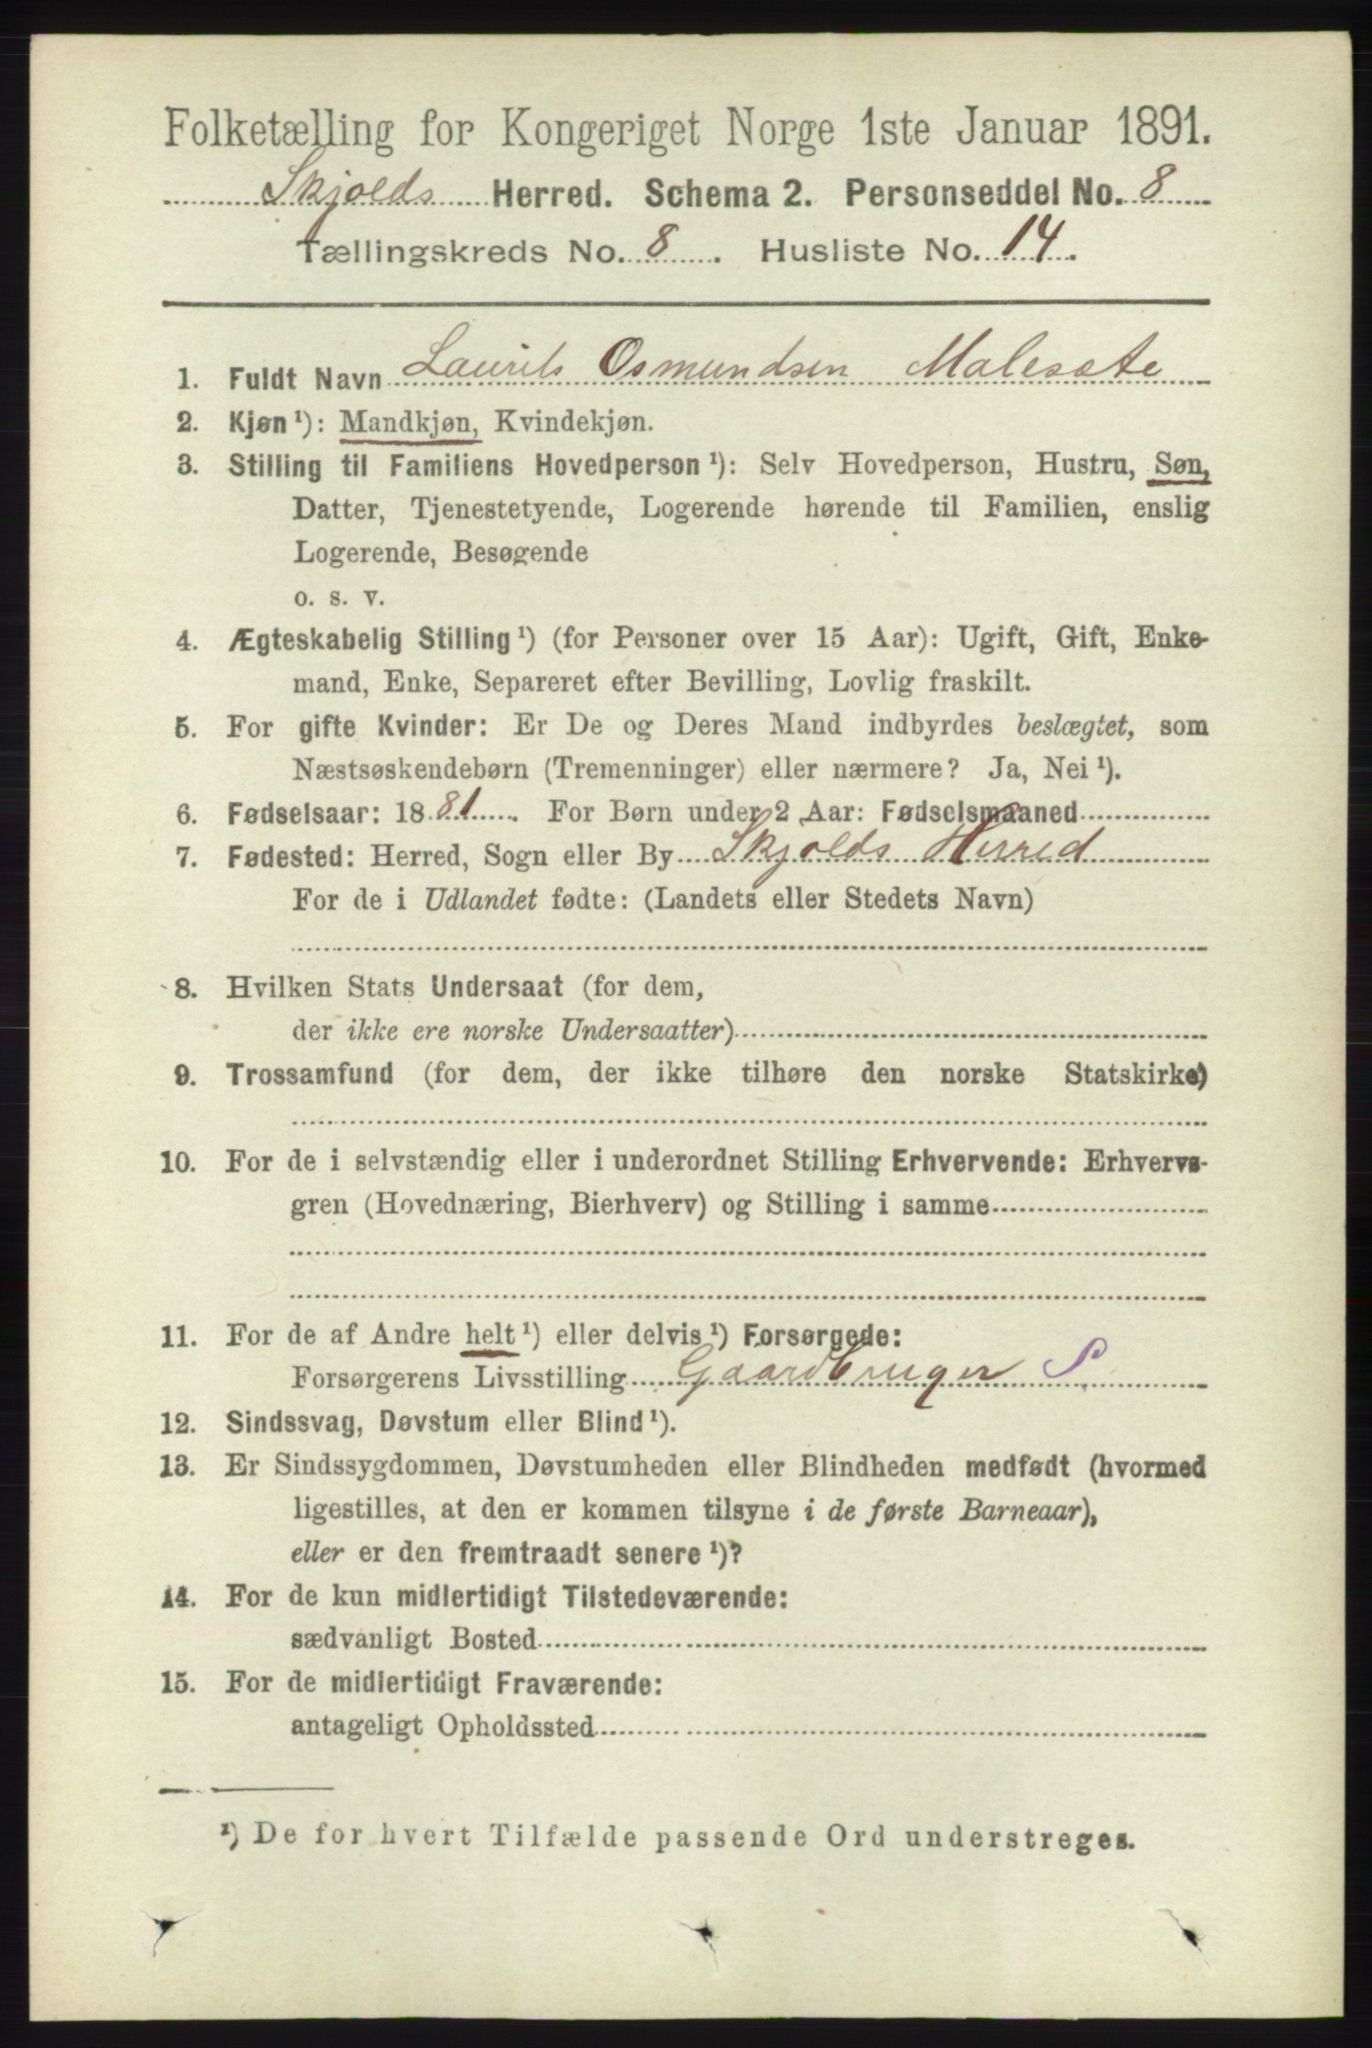 Folketælling for Kongeriget Norge 1ste Januar 1891.
Skjolds Herred. Schema 2. Personseddel No. 8
Tællingskreds No. 8. Husliste No. 14.
1. Fuldt Navn Laurits Osmundsen Malesæte
2. Kjøn ¹): Mandkjøn, Kvindekjøn.
3. Stilling til Familiens Hovedperson ¹): Selv Hovedperson, Hustru, Søn,
Datter, Tjenestetyende, Logerende hørende til Familien, enslig
Logerende, Besøgende
o. s. v.
4. Ægteskabelig Stilling ¹) (for Personer over 15 Aar): Ugift, Gift, Enke-
mand, Enke, Separeret efter Bevilling, Lovlig fraskilt.
5. For gifte Kvinder: Er De og Deres Mand indbyrdes beslægtet, som
Næstsøskendebørn (Tremenninger) eller nærmere? Ja, Nei ¹).
6. Fødselsaar: 1881. For Børn under 2 Aar: Fødselsmaaned
7. Fødested: Herred, Sogn eller By Skjolds Herred
For de i Udlandet fødte: (Landets eller Stedets Navn)
8. Hvilken Stats Undersaat (for dem,
der ikke ere norske Undersaatter)
9. Trossamfund (for dem, der ikke tilhøre den norske Statskirke)
10. For de i selvstændig eller i underordnet Stilling Erhvervende: Erhvervs-
gren (Hovednæring, Bierhverv) og Stilling i samme
11. For de af Andre helt ¹) eller delvis ¹) Forsørgede:
Forsørgerens Livsstilling Gaardbruger S.
12. Sindssvag, Døvstum eller Blind ¹).
13. Er Sindssygdommen, Døvstumheden eller Blindheden medfødt (hvormed
ligestilles, at den er kommen tilsyne i de første Barneaar),
eller er den fremtraadt senere ¹)?
14. For de kun midlertidigt Tilstedeværende:
sædvanligt Bosted
15. For de midlertidigt Fraværende:
antageligt Opholdssted
¹) De for hvert Tilfælde passende Ord understreges.